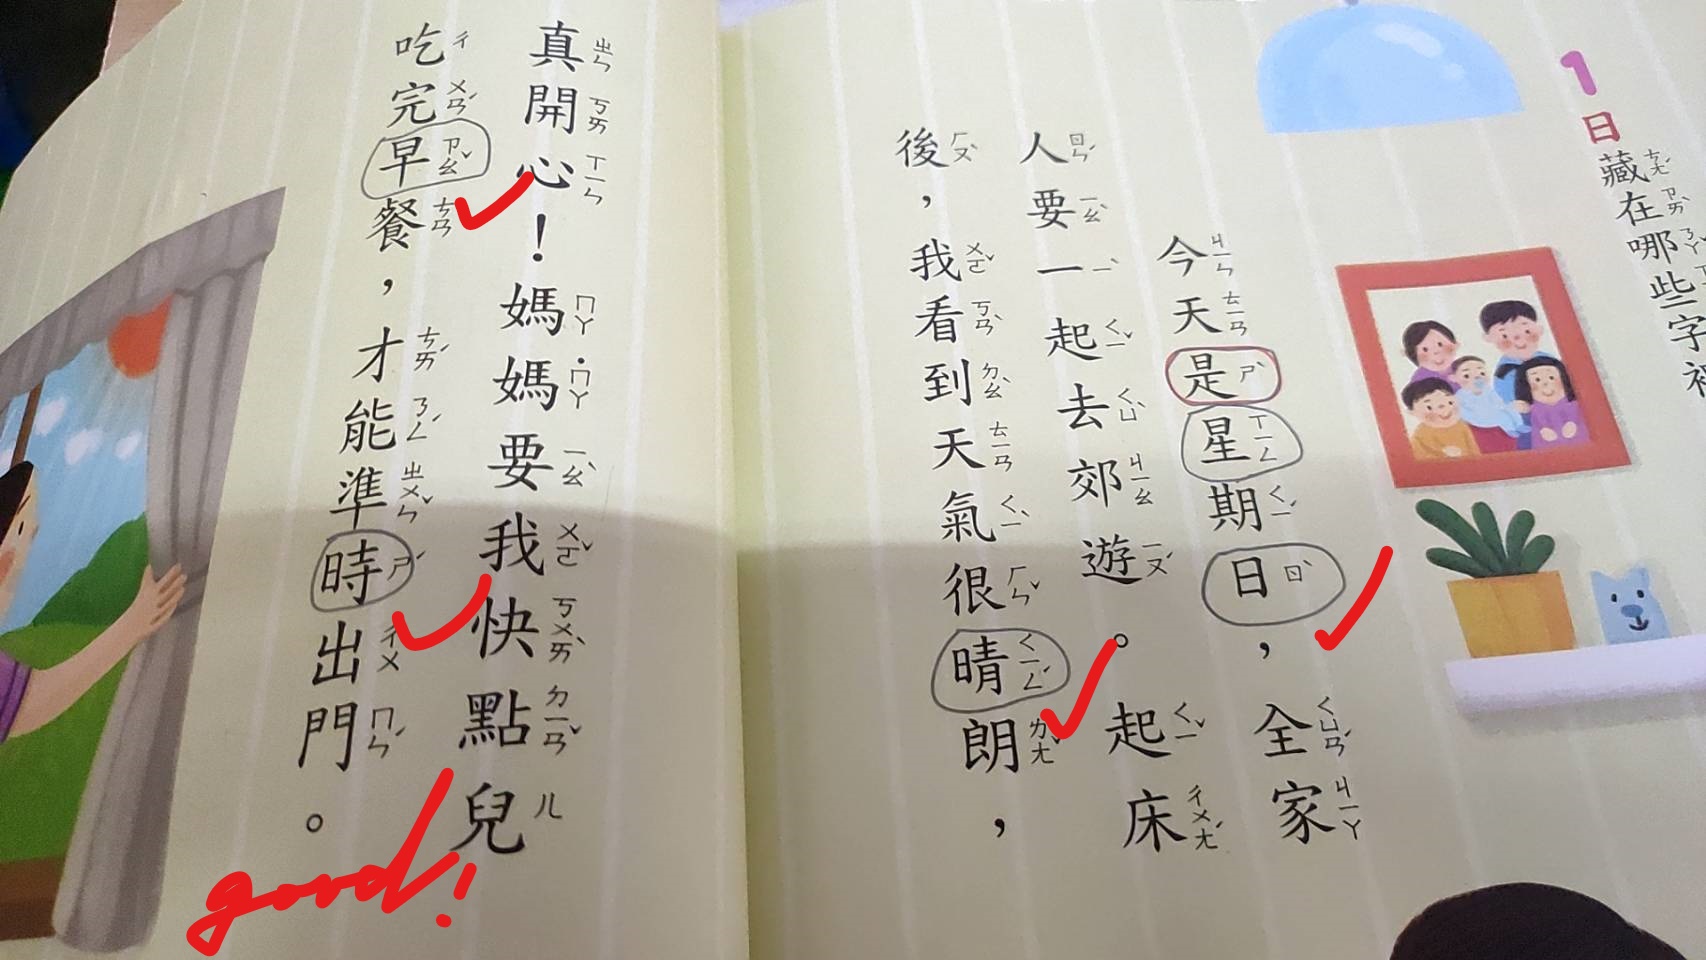 1
日藏在哪些字裡
今天是星期日，全家
人要一起去郊遊。起床
後，我看到天氣很晴朗，
真開心！媽媽要我快點兒
吃完早餐，才能準時出門。
good!